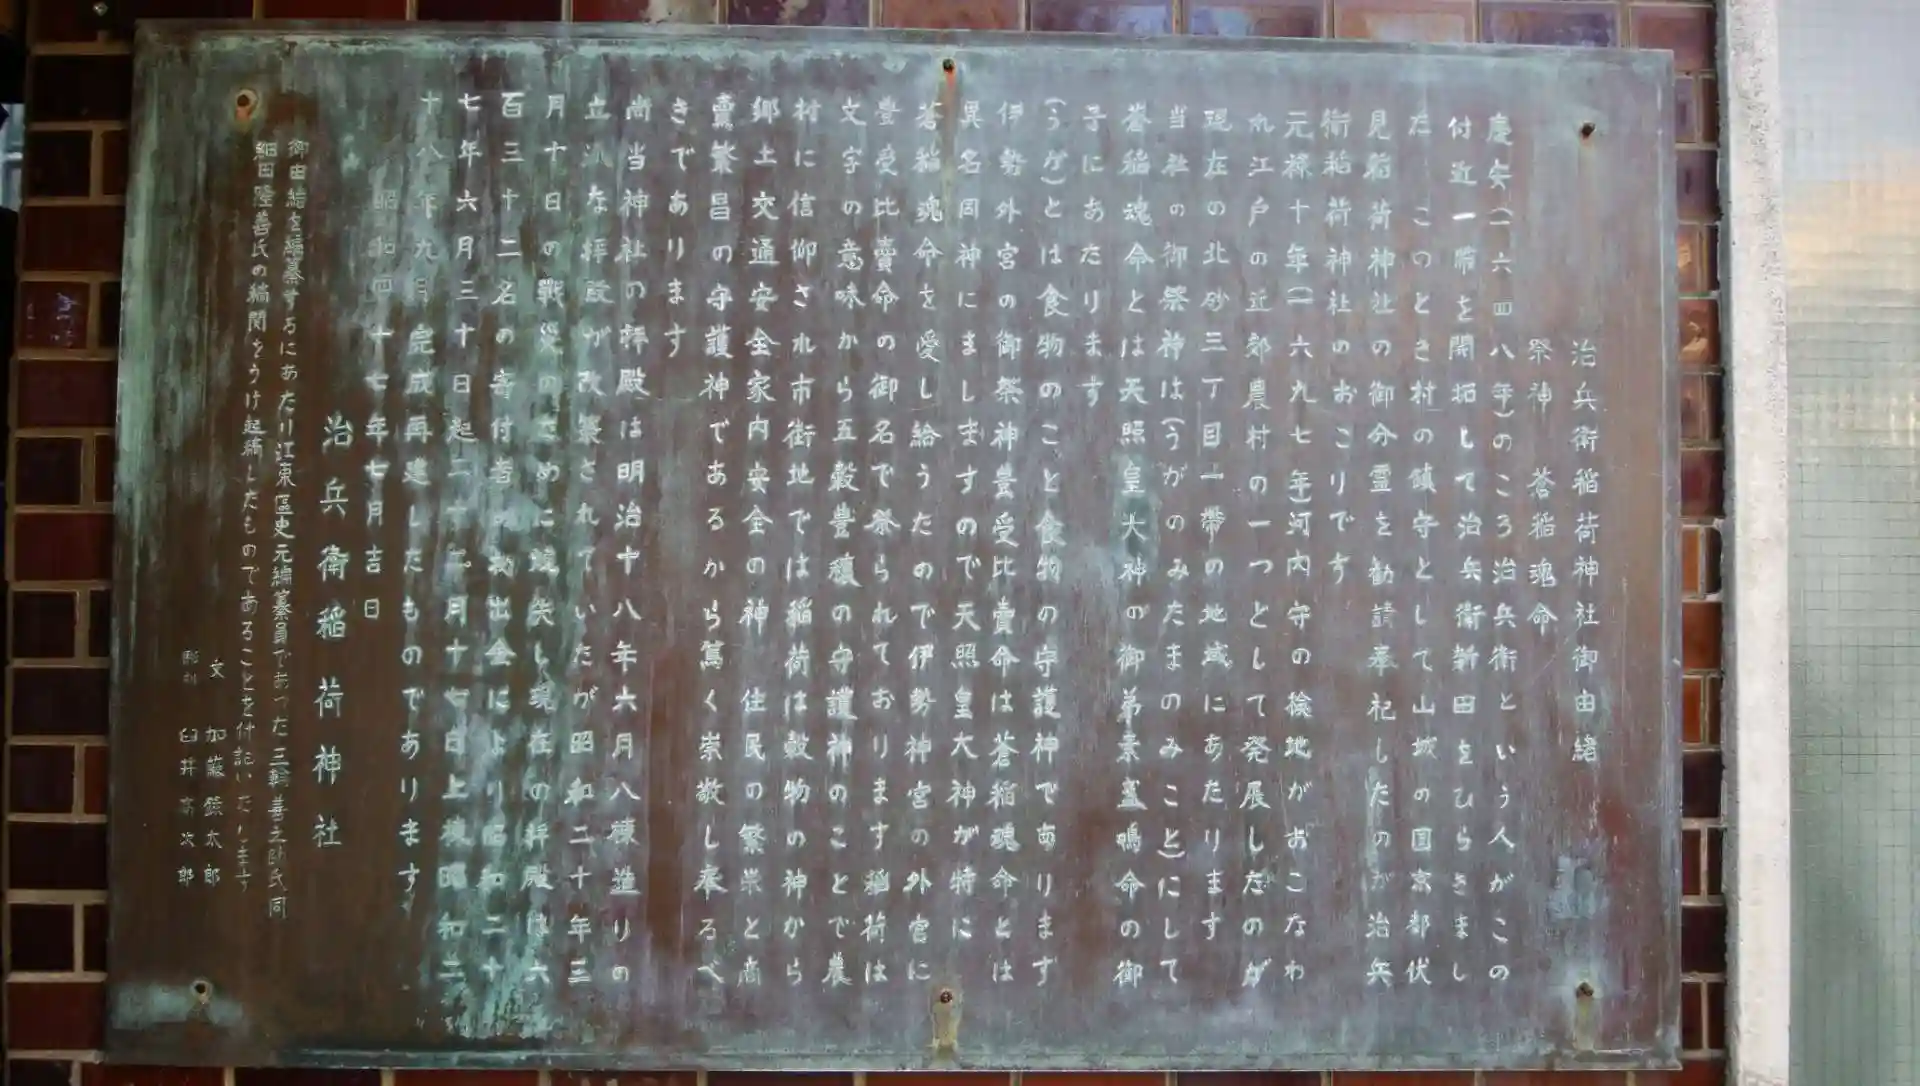 治兵衛稲荷神社御由緒
祭神 蒼稲魂命
慶安(一六四八年)のころ治兵衛という人がこの
付近一帯を開拓して治兵衛新田をひらきまし
た このとき村の鎮守として山城の国京都伏
見稲荷神社の御分霊を勧請奉祀したのが治兵
衛稲荷神社のおこりです
元禄十年(一六九七年)河内守の検地がおこなわ
れ江戸の近郊農村の一つとして発展したのが
現在の北砂三丁目一帯の地域にあたります
当社の御祭神は(うがのみたまのみこと)にして
蒼稲魂命とは天照皇大神の御弟素盞鳴命の御
子にあたります
(うが)とは食物のこと食物の守護神であります
伊勢外宮の御祭神豊受比賣命は蒼稲魂命とは
異名同神にましますので天照皇大神が特に
蒼稲魂命を愛し給うたので伊勢神宮の外宮に
豊受比賣命の御名で祭られております稲荷は
文字の意味から五穀豊穰の守護神のことで農
村に信仰され市街地では稲荷は穀物の神から
郷土交通安全家内安全の神 住民の繁栄と商
賣繁昌の守護神であるから篤く崇敬し奉るべ
きであります
尚当神社の拝殿は明治十八年六月八棟造りの
立派な拝殿が改築されていたが昭和二十年三
月十日の戰災のために焼失し現在の拝殿は六
百三十二名の寄付者の拠出金により昭和二十
七年六月三十日起二十七年七月十七日上棟昭和二
十八年九月完成再建したものであります
昭和四十七年七月吉日
治兵衛稲荷神社
御由緒を編纂するにあたり江東區史元編纂員であった三輪善之助氏同
細田隆善氏の縞閲をうけ起稿したものであることを付記いたします
文 加藤鉄太郎
彫刻 臼井喜次郎